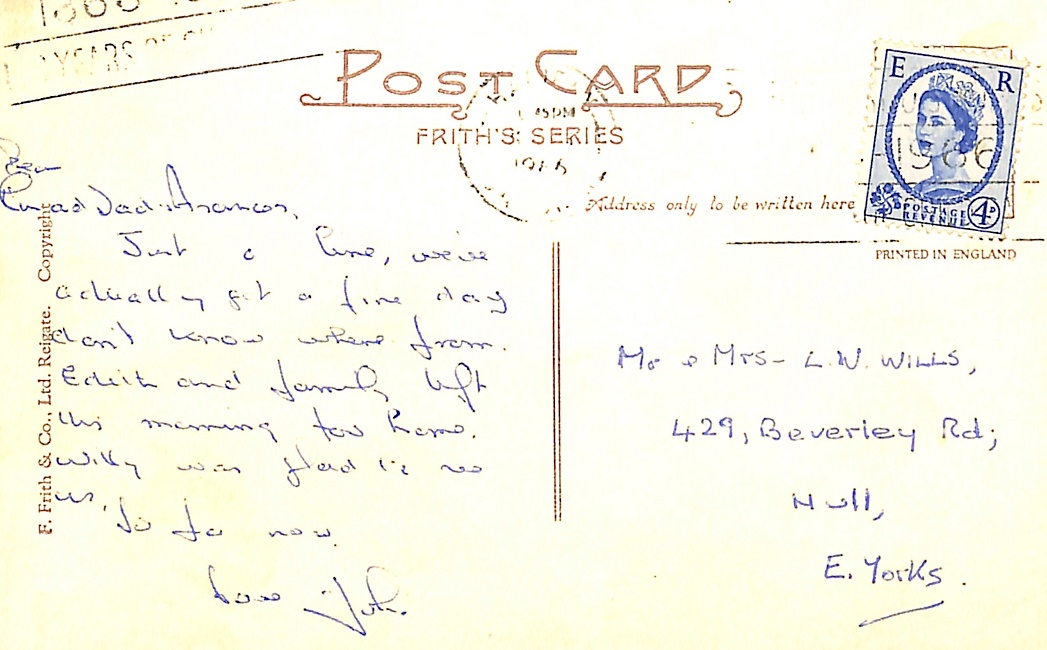 YEARS OF
POST CARD
45PM
1966
FRITH'S SERIES
E R
1966
POSTAGE
REVENUE
4D
Address only to be written here
PRINTED IN ENGLAND
F. Frith & Co., Ltd. Reigate. Copyright
Dear
Dad
Just a line, we've
actually got a fine day
don't know where from.
Edith and family left
this morning for home.
Willy was glad to see
us,
So for now
Love John.
Mr & Mrs - L.W. WILLS,
429, Beverley Rd;
Hull,
E. Yorks.